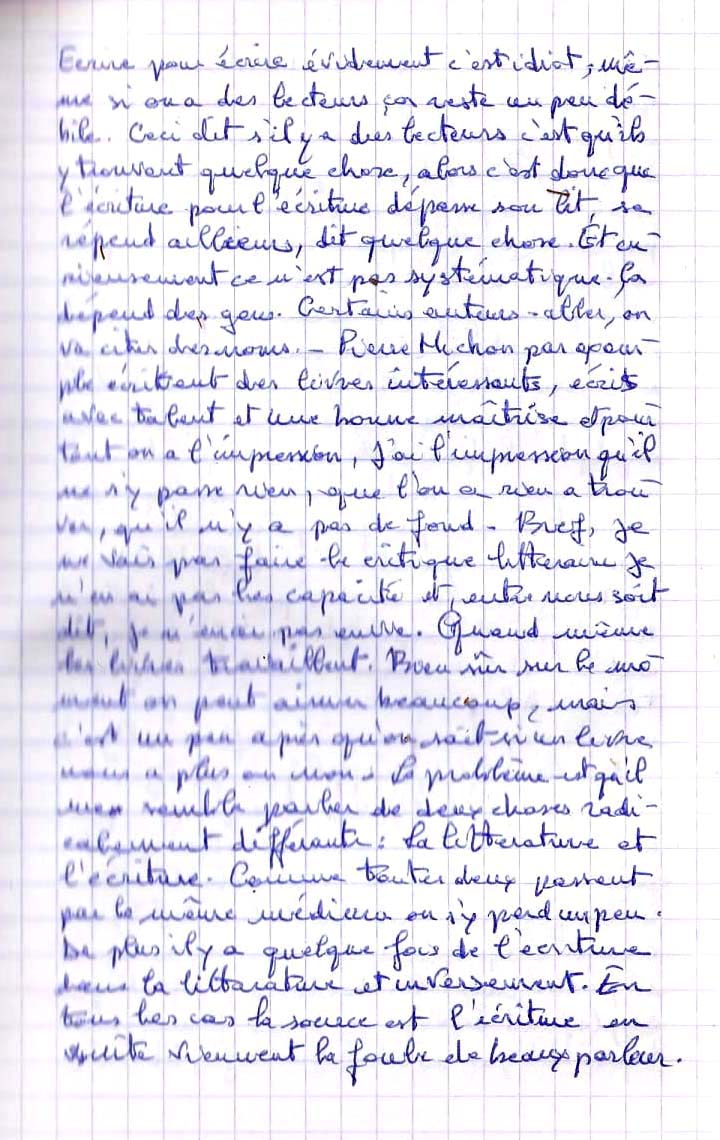 Ecrire pour écrire évidement c'est idiot, mê-
me si on a des lecteurs ça reste un peu dé-
bile. Ceci dit s'il y a des lecteurs c'est qu'ils
y trouvent quelque chose, alors c'est donc que
l'écriture pour l'écriture dépasse son lit, se
répend ailleurs, dit quelque chose. Et cu-
rieusement ce n'est pas systématique. ça
dépend des gens. Certains auteurs - aller, on
va citer des noms. - Pierre Michon par exem-
ple écrivent des livres intéressants, écrits
avec talent et une bonne maîtrise et pour
tant on a l'impression, j'ai l'impression qu'il
ne s'y passe rien, que l'on a rien a trou
ver, qu'il n'y a pas de fond - Bref, je
ne vais pas faire le critique litteraire je
n'en ai pas les capacité et, entre nous soit
dit, je n'en ai pas envie. Quand même
les livres travaillent. Bien sûr sur le mo
ment on peut aimer beaucoup, mais
c'est un peu après qu'on sait si un livre
nous a plus ou non. Le problème est qu'il
me semble parler de deux choses radi-
calement différente : la litterature et
l'écriture. Comme toutes deux passent
par le même médium on s'y perd un peu.
De plus il y a quelque fois de l'écriture
dans la litterature et inversement. En
tous les cas la source est l'écriture en
suite viennent la foule de beaux parleur.